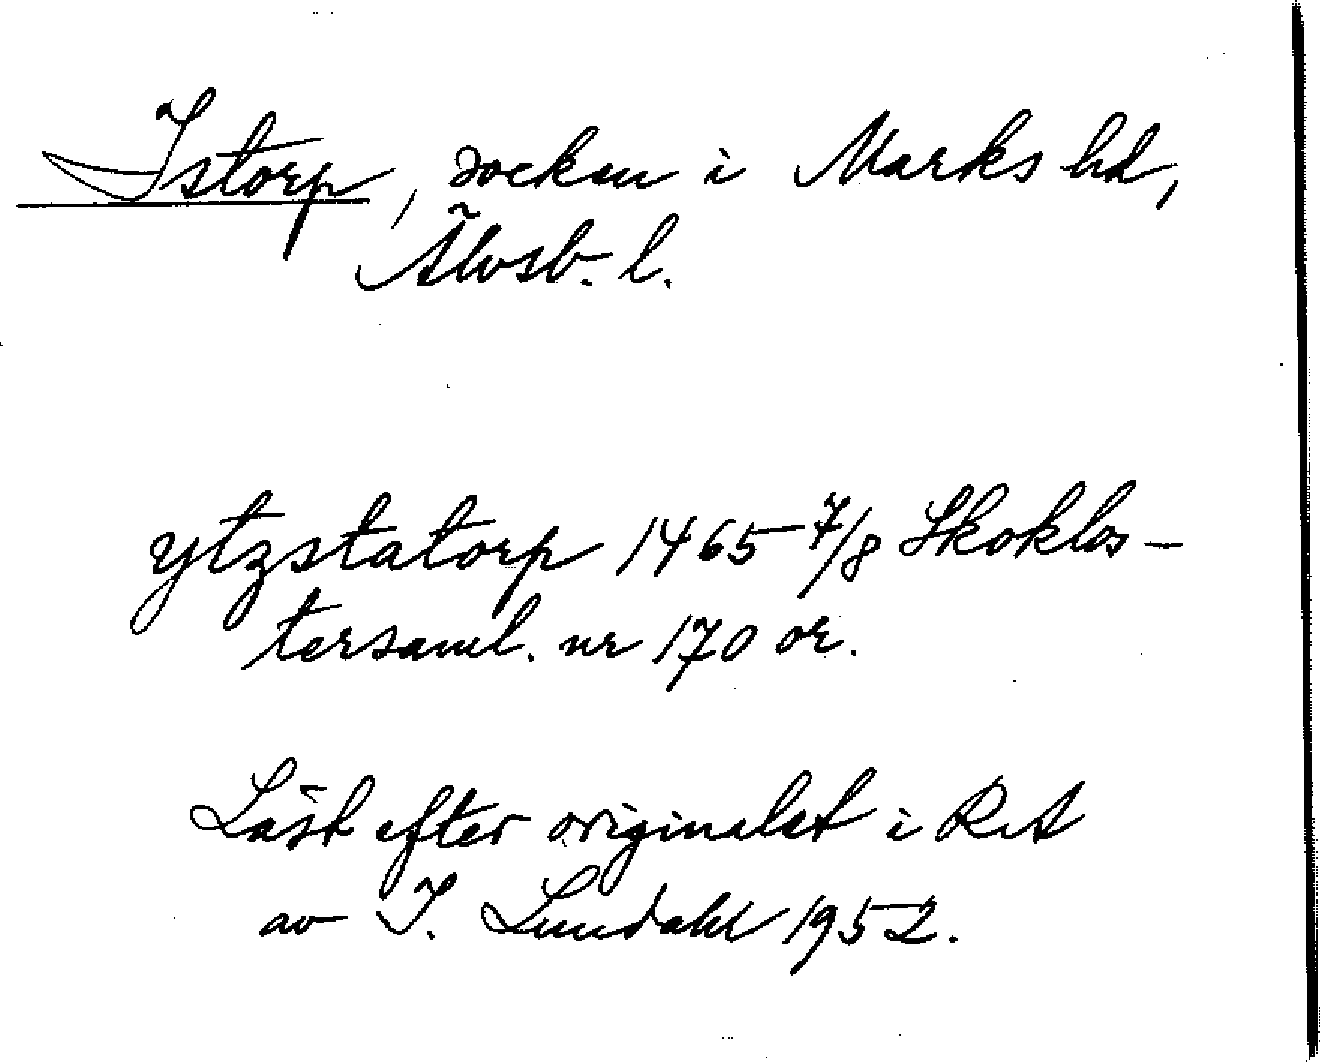 Istorp, socken i Marks hd,
Älvsb. l.
ytzstatorp 1465 7/8 Skoklos-
tersaml. nr 170 or.
Läst efter originalet i RA
av I. Lundahl 1952.